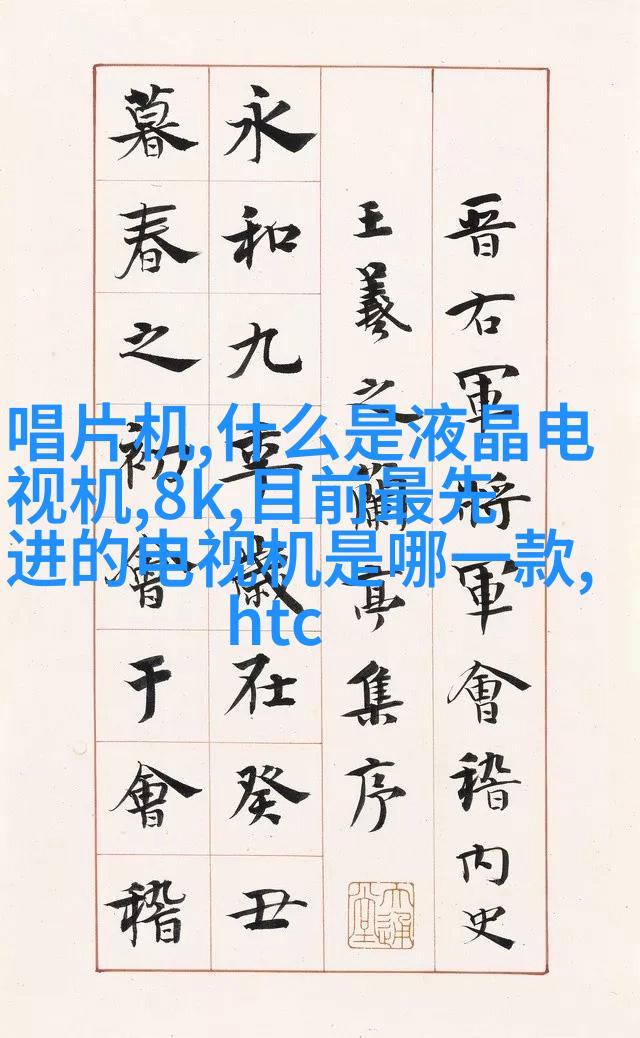 晋右軍將軍會稽内史
王羲之蘭亭集序
永和九年歲在癸丑
暮春之初會于會稽
唱片机,什么是液晶电
视机,8k,目前最先
进的电视机是哪一款,
htc